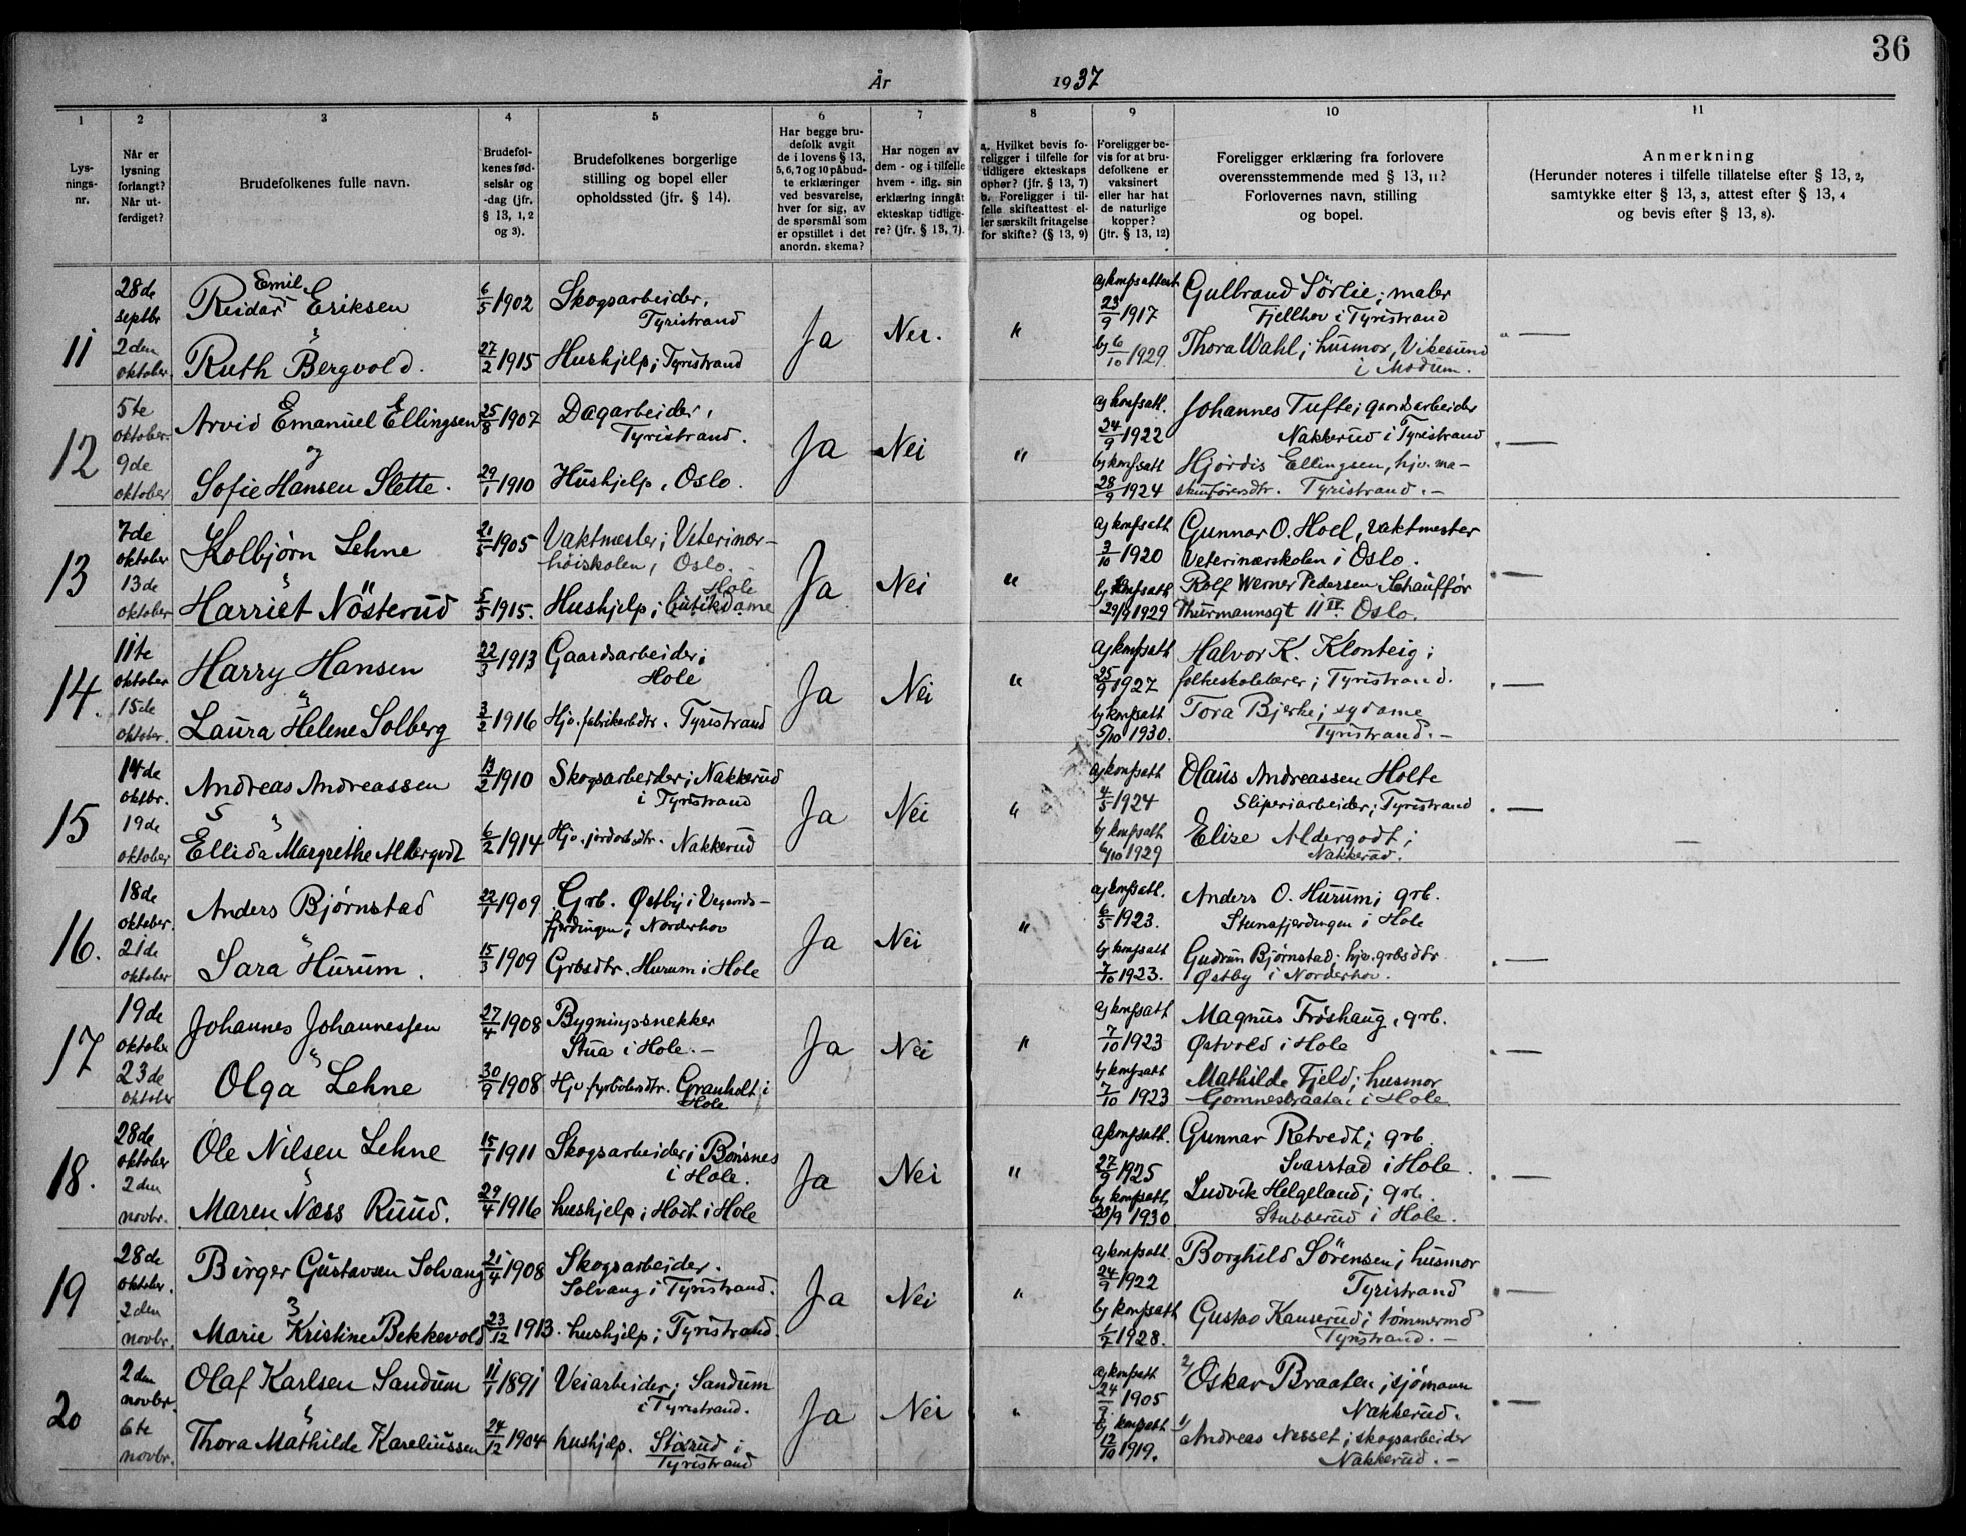 36
År 1937
1 2 3 4 5 6 7 8 9 10 11
Lysnings-nr.
Når er lysning forlangt? Når utferdiget?
Brudefolkenes fulle navn.
Brudefolkenes fødselsår og -dag (jfr. § 13, 1, 2 og 3).
Brudefolkenes borgerlige stilling og bopel eller opholdssted (jfr. § 14).
Har begge brudefolk avgit de i lovens § 13, 5, 6, 7 og 10 påbudte erklæringer ved besvarelse, hver for sig, av de spørsmål som er opstillet i det anordn. skema?
Har nogen av dem - og i tilfelle hvem - iflg. sin erklæring inngåt ekteskap tidligere? (jfr. § 13, 7).
a. Hvilket bevis foreligger i tilfelle for tidligere ekteskaps ophør? (jfr. § 13, 7) b. Foreligger i tilfelle skifteattest eller særskilt fritagelse for skifte? (§ 13, 9)
Foreligger bevis for at brudefolkene er vaksinert eller har hat de naturlige kopper? (jfr. § 13, 12)
Foreligger erklæring fra forlovere overensstemmende med § 13, 11? Forlovernes navn, stilling og bopel.
Anmerkning (Herunder noteres i tilfelle tillatelse efter § 13, 2, samtykke efter § 13, 3, attest efter § 13, 4 og bevis efter § 13, 8).
11 28de septbr Reidar Emil Eriksen 6/5 1902 Skogsarbeider, Tyristrand Ja Nei. " a) konfsattest 23/9 1917 Gulbrand Sörlie; maler Fjellhov i Tyristrand " —
2den oktober. Ruth Bergvold. 27/2 1915 Hushjelp; Tyristrand b) 6/10 1929 Thora Wahl; husmor, Vikesund i Modum.
12 5te oktober. Arvid Emanuel Ellingsen 25/8 1907 Dagarbeider, Tyristrand. Ja Nei " a) konfsatt. 24/9 1922 Johannes Tufte; gaardsarbeider Nakkerud i Tyristrand
og
9de oktober Sofie Hansen Slette. 29/1 1910 Hushjelp, Oslo. b) konfsatt 28/9 1924 Hjördis Ellingsen, hjv. maskinførersdtr. Tyristrand. —
13 7de oktober Kolbjørn Lehne 21/5 1905 Vaktmester; Veterinærhöiskolen, Oslo. Ja Nei " a) konfsatt 3/10 1920 Gunnar O. Hoel, vaktmester Veterinærskolen i Oslo.
13de oktober Harriet Nösterud 5/5 1915. Hushjelp; butikdame Hole b) konfsatt 29/9 1929 Rolf Werner Pedersen Schauffør Thurmannsgt 11 IV. Oslo.
14. 11te oktober Harry Hansen 22/3 1913 Gaardsarbeider; Hole Ja Nei " a) konfsatt 25/9 1927 Halvor K. Klonteig; folkeskolelærer; Tyristrand.
15de oktober. Laura Helene Solberg 3/2 1916 Hjv. fabrikarbdtr. Tyristrand b) konfsatt 5/10 1930. Tora Bjerke; sydame Tyristrand. —
15 14de oktbr. Andreas Andreassen 13/2 1910 Skogsarbeider; Nakkerud i Tyristrand Ja Nei " a) konfsatt 4/5 1924 Olaus Andreassen Holte Sliperiarbeider; Tyristrand
19de oktober Ellida Margrethe Aldergodt 6/2 1914 Hjv. jordarbdtr. Nakkerud b) konfsatt 6/10 1929 Elise Aldergodt; Nakkerud.
16. 18de oktober. Anders Bjørnstad 22/1 1909 Grb. Østby i Vegaardsfjerdingen; Norderhov Ja Nei " a) konfsatt. 6/5 1923. Anders O. Hurum; grb. Steinsfjerdingen i Hole
21de oktober Sara Hurum. 15/3 1909 Grbsdtr. Hurum i Hole b) konfsatt 7/10 1923. Gudrun Bjørnstad; hjv. grbsdtr Østby i Norderhov.
17 19de oktober Johannes Johannessen 27/4 1908 Bygningssnekker Stua i Hole. — Ja Nei " a) konfsatt 7/10 1923 Magnus Fröshaug, grb. Østvold i Hole
23de oktober Olga Lehne 30/9 1908 Hjv. fyrbötersdtr. Granholt i Hole b) konfsatt 7/10 1923 Mathilde Fjeld; husmor Gomnesbraaten i Hole.
18. 28de oktober Ole Nilsen Lehne 15/1 1911 Skogsarbeider; Bönsnes i Hole. Ja Nei " a) konfsatt. 27/9 1925 Gunnar Retvedt; grb. Svarstad i Hole.
2den novbr. Maren Næss Ruud. 29/4 1916 hushjelp; Hodt i Hole b) konfsatt 28/9 1930 Ludvik Helgeland; grb. Stubberud i Hole.
19 28de oktober. Birger Gustavsen Solvang 21/4 1908 Skogsarbeider. Solvang i Tyristrand. Ja Nei " a) konfsatt. 24/9 1922 Borghild Sörensen; husmor Tyristrand
2den novbr. Marie Kristine Bekkevold 23/12 1913. hushjelp; Tyristrand. b) konfsatt 1/7 1928. Gustav Kauserud; tömmermd Tyristrand. —
20 2den novbr. Olaf Karlsen Sandum 11/1 1891 Veiarbeider; Sandum i Tyristrand. Ja Nei " a) konfsatt 24/9 1905 2) Oskar Braaten; sjömann Nakkerud.
6te novbr. Thora Mathilde Kareliussen 24/12 1904 hushjelp. Stixrud i Tyristrand b) konfsatt 12/10 1919. 1) Andreas Nesset; skogsarbeider Nakkerud. —